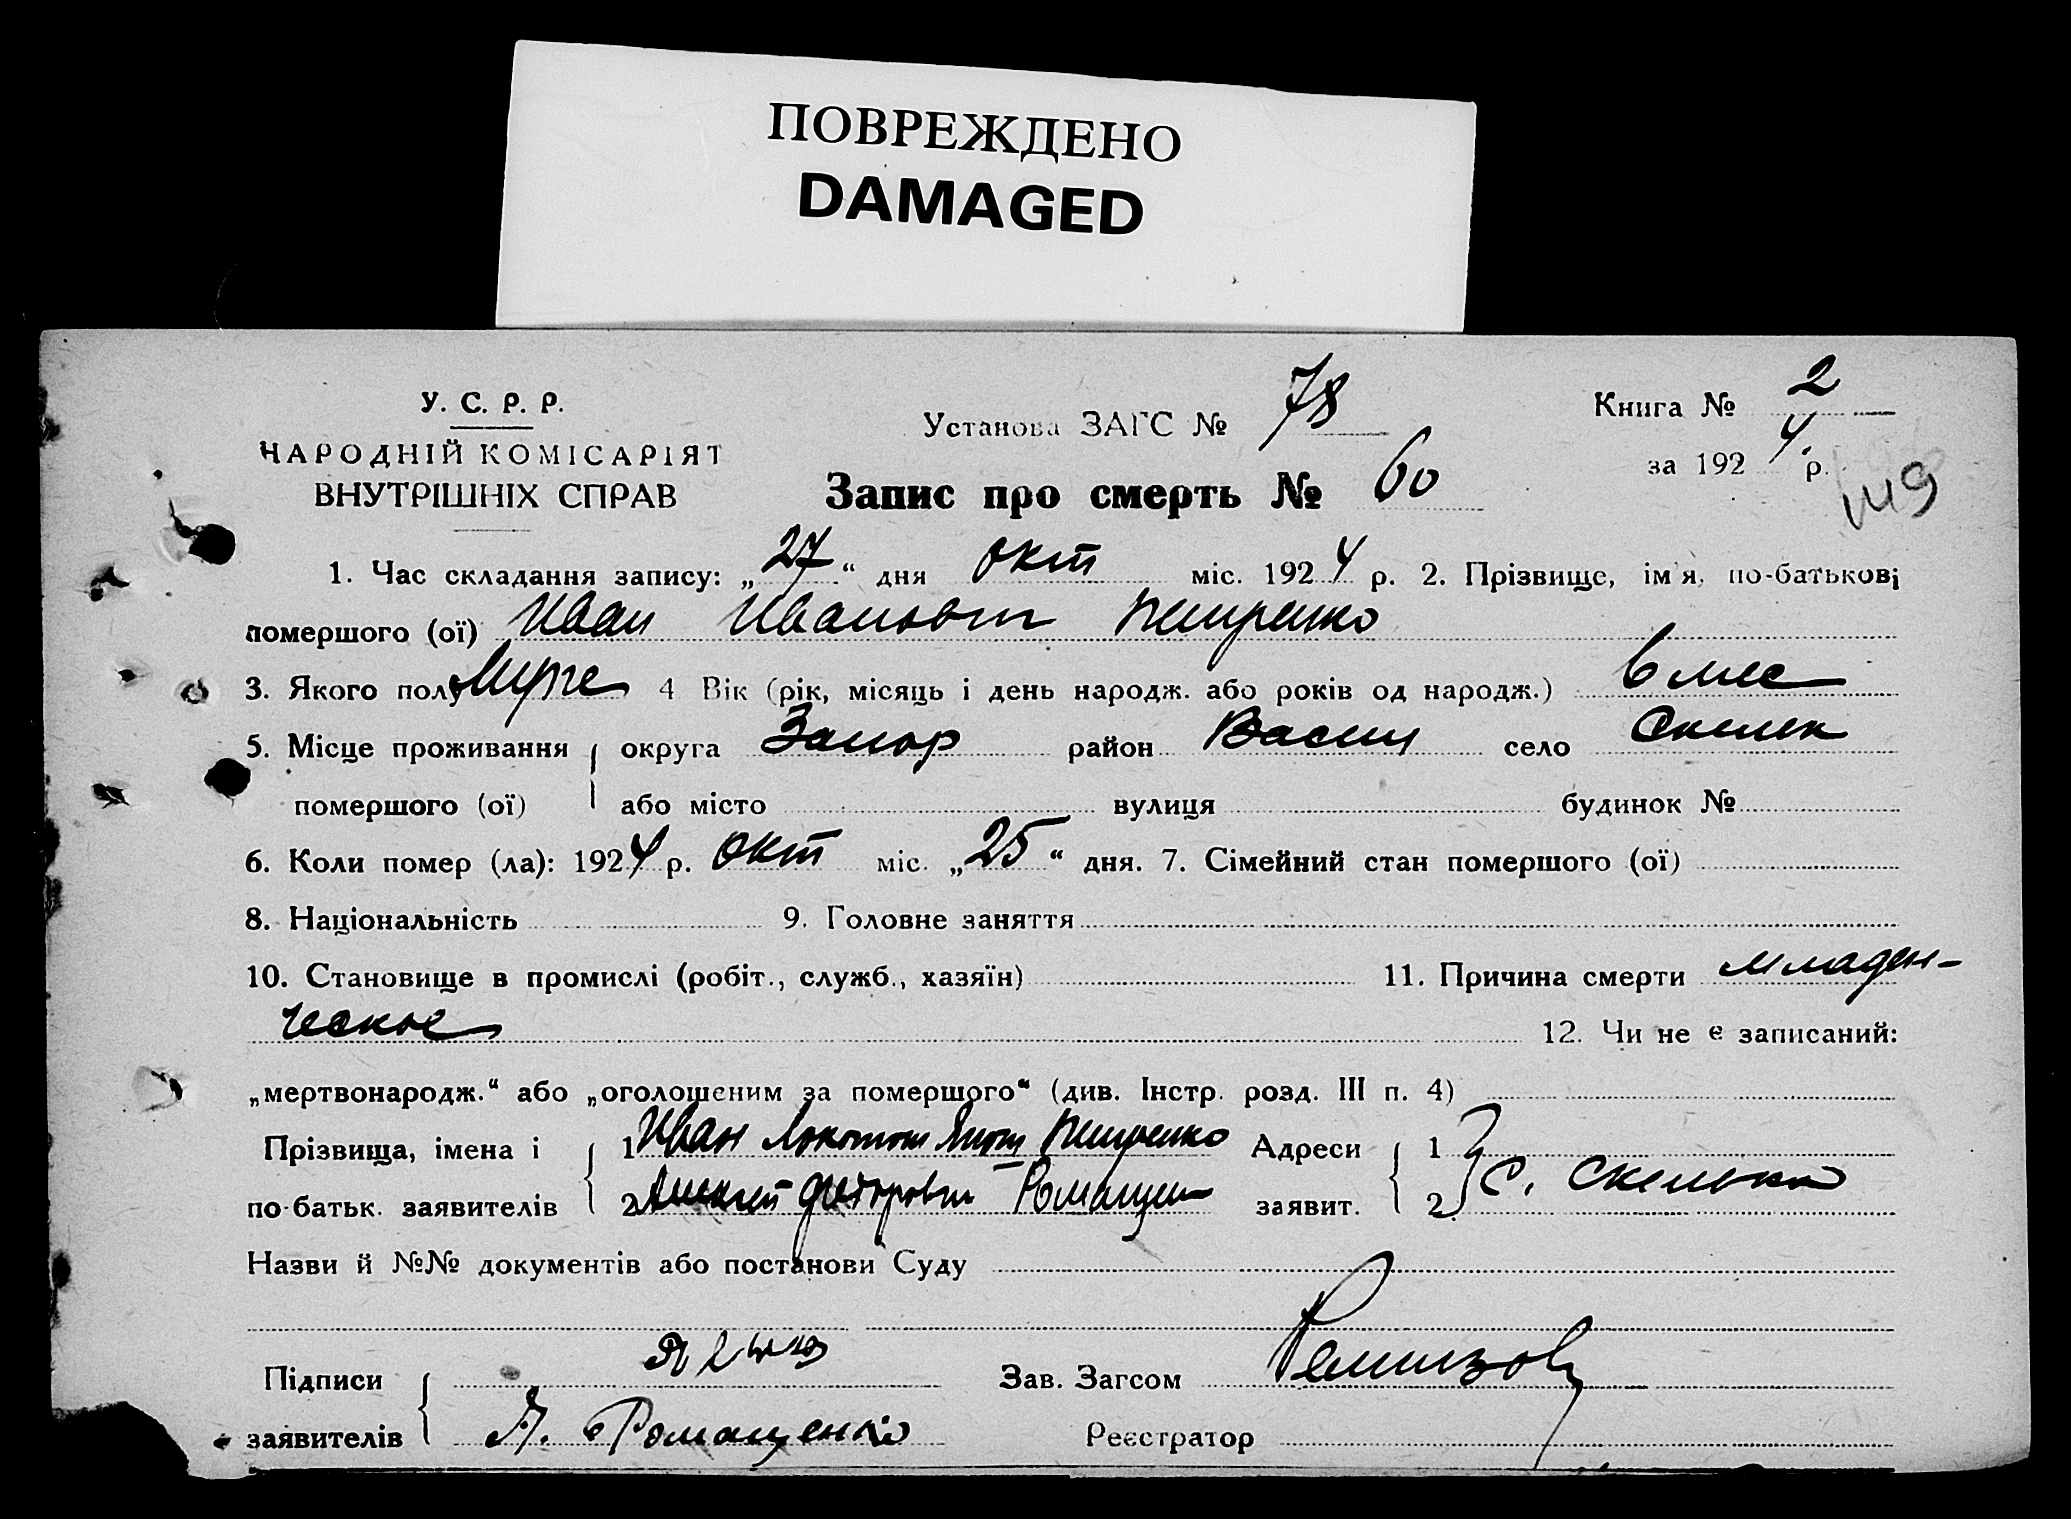 ПОВРЕЖДЕНО
DAMAGED
У. С. Р. Р.
НАРОДНІЙ КОМІСАРІЯТ
ВНУТРІШНІХ СПРАВ
Установа ЗАГС № 78
Книга № 2
за 192 4 р.
Запис про смерть № 60
149
1. Час складання запису: „27“ дня окт міс. 1924 р. 2. Прізвище, ім'я, по-батькові
помершого (ої) Иван Иванович Петренко
3. Якого полу Муже 4 Вік (рік, місяць і день народж. або років од народж.) 6 мес
5. Місце проживання округа Запор район Васил село Скельк
помершого (ої) або місто вулиця будинок №
6. Коли помер (ла): 1924 р. окт міс. „25“ дня. 7. Сімейний стан помершого (ої)
8. Національність 9. Головне заняття
10. Становище в промислі (робіт., служб., хазяїн) 11. Причина смерти младен-
ческое 12. Чи не є записаний:
„мертвонародж.“ або „оголошеним за помершого“ (див. Інстр. розд. III п. 4)
Прізвища, імена і 1 Иван Петренко Адреси 1
по-батьк. заявителів 2 Алексей Федорович Романцен заявит. 2 С. Скелька
Назви й №№ документів або постанови Суду
Підписи Зав. Загсом Ремизов
заявителів Я. Романценко Реєстратор